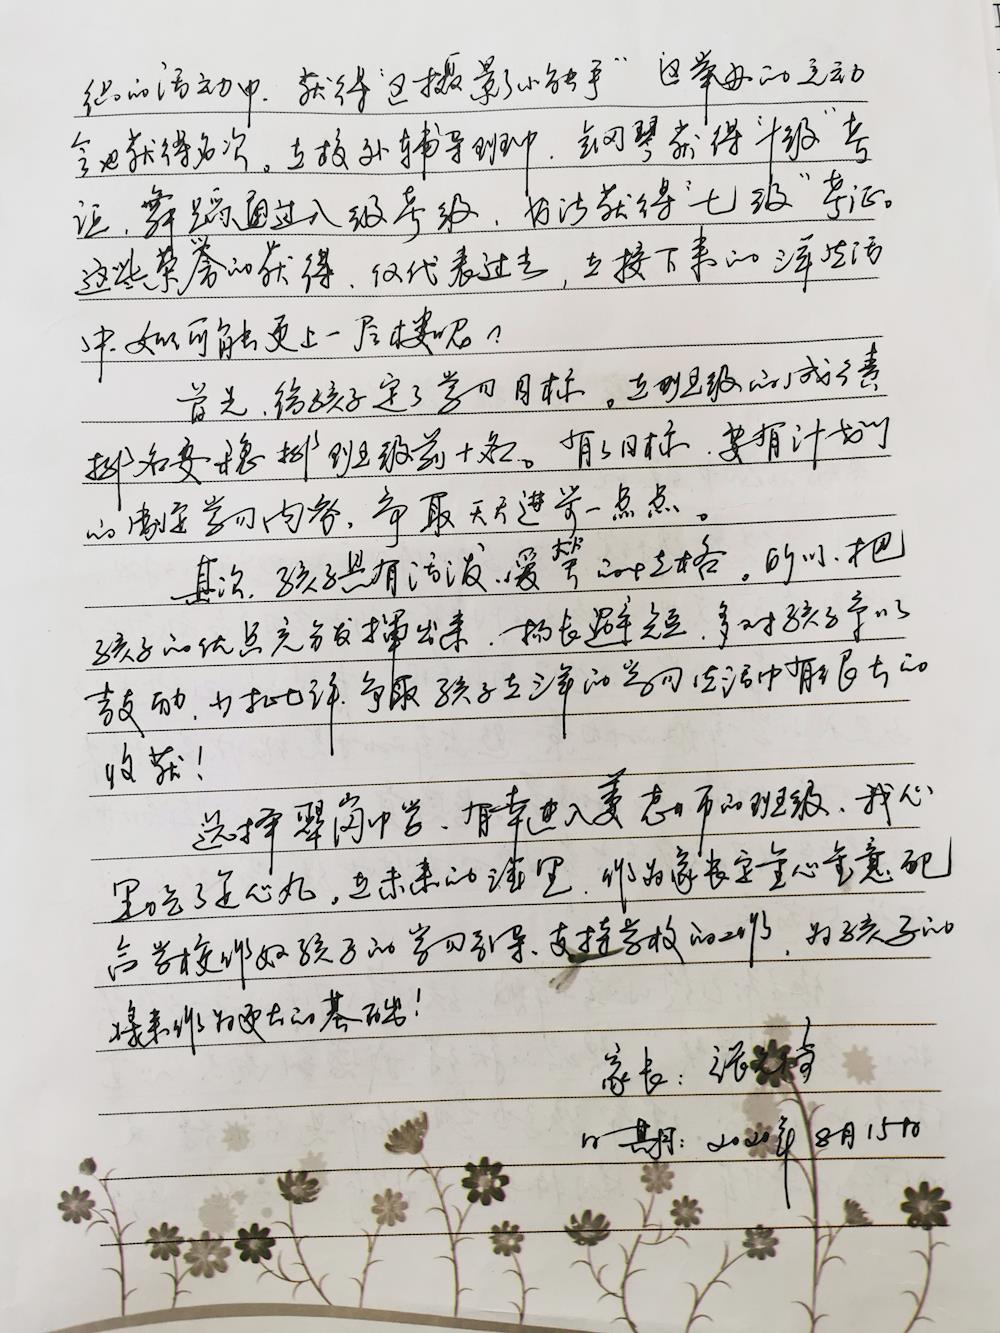 织的活动中，获得"区摄影小能手"区举办的运动
会也获得名次。在校外辅导班中，钢琴获得"十级"考
证，舞蹈通过八级考级，书法获得"七级"考证。
这些荣誉的获得，仅代表过去，在接下来的三年生活
中，如何能更上一层楼呢？
首先，给孩子定了学习目标。在班级的成绩
排名要稳排班级前十名。有了目标，要有计划
的制定学习内容，争取天天进步一点点。
其次，孩子具有活泼、爱笑的性格。所以，把
孩子的优点充分发挥出来，扬长避短，多对孩子予以
鼓励，少批评，争取孩子在三年的学习生活中有很大的
收获！
选择翠岗中学，有幸进入姜老师的班级，我心
里吃了定心丸。在未来的三年里，作为家长定全心全意配
合学校作好孩子的学习引导，支持学校的工作，为孩子的
将来作为更大的基础！
家长：张
日期：2020年8月15日